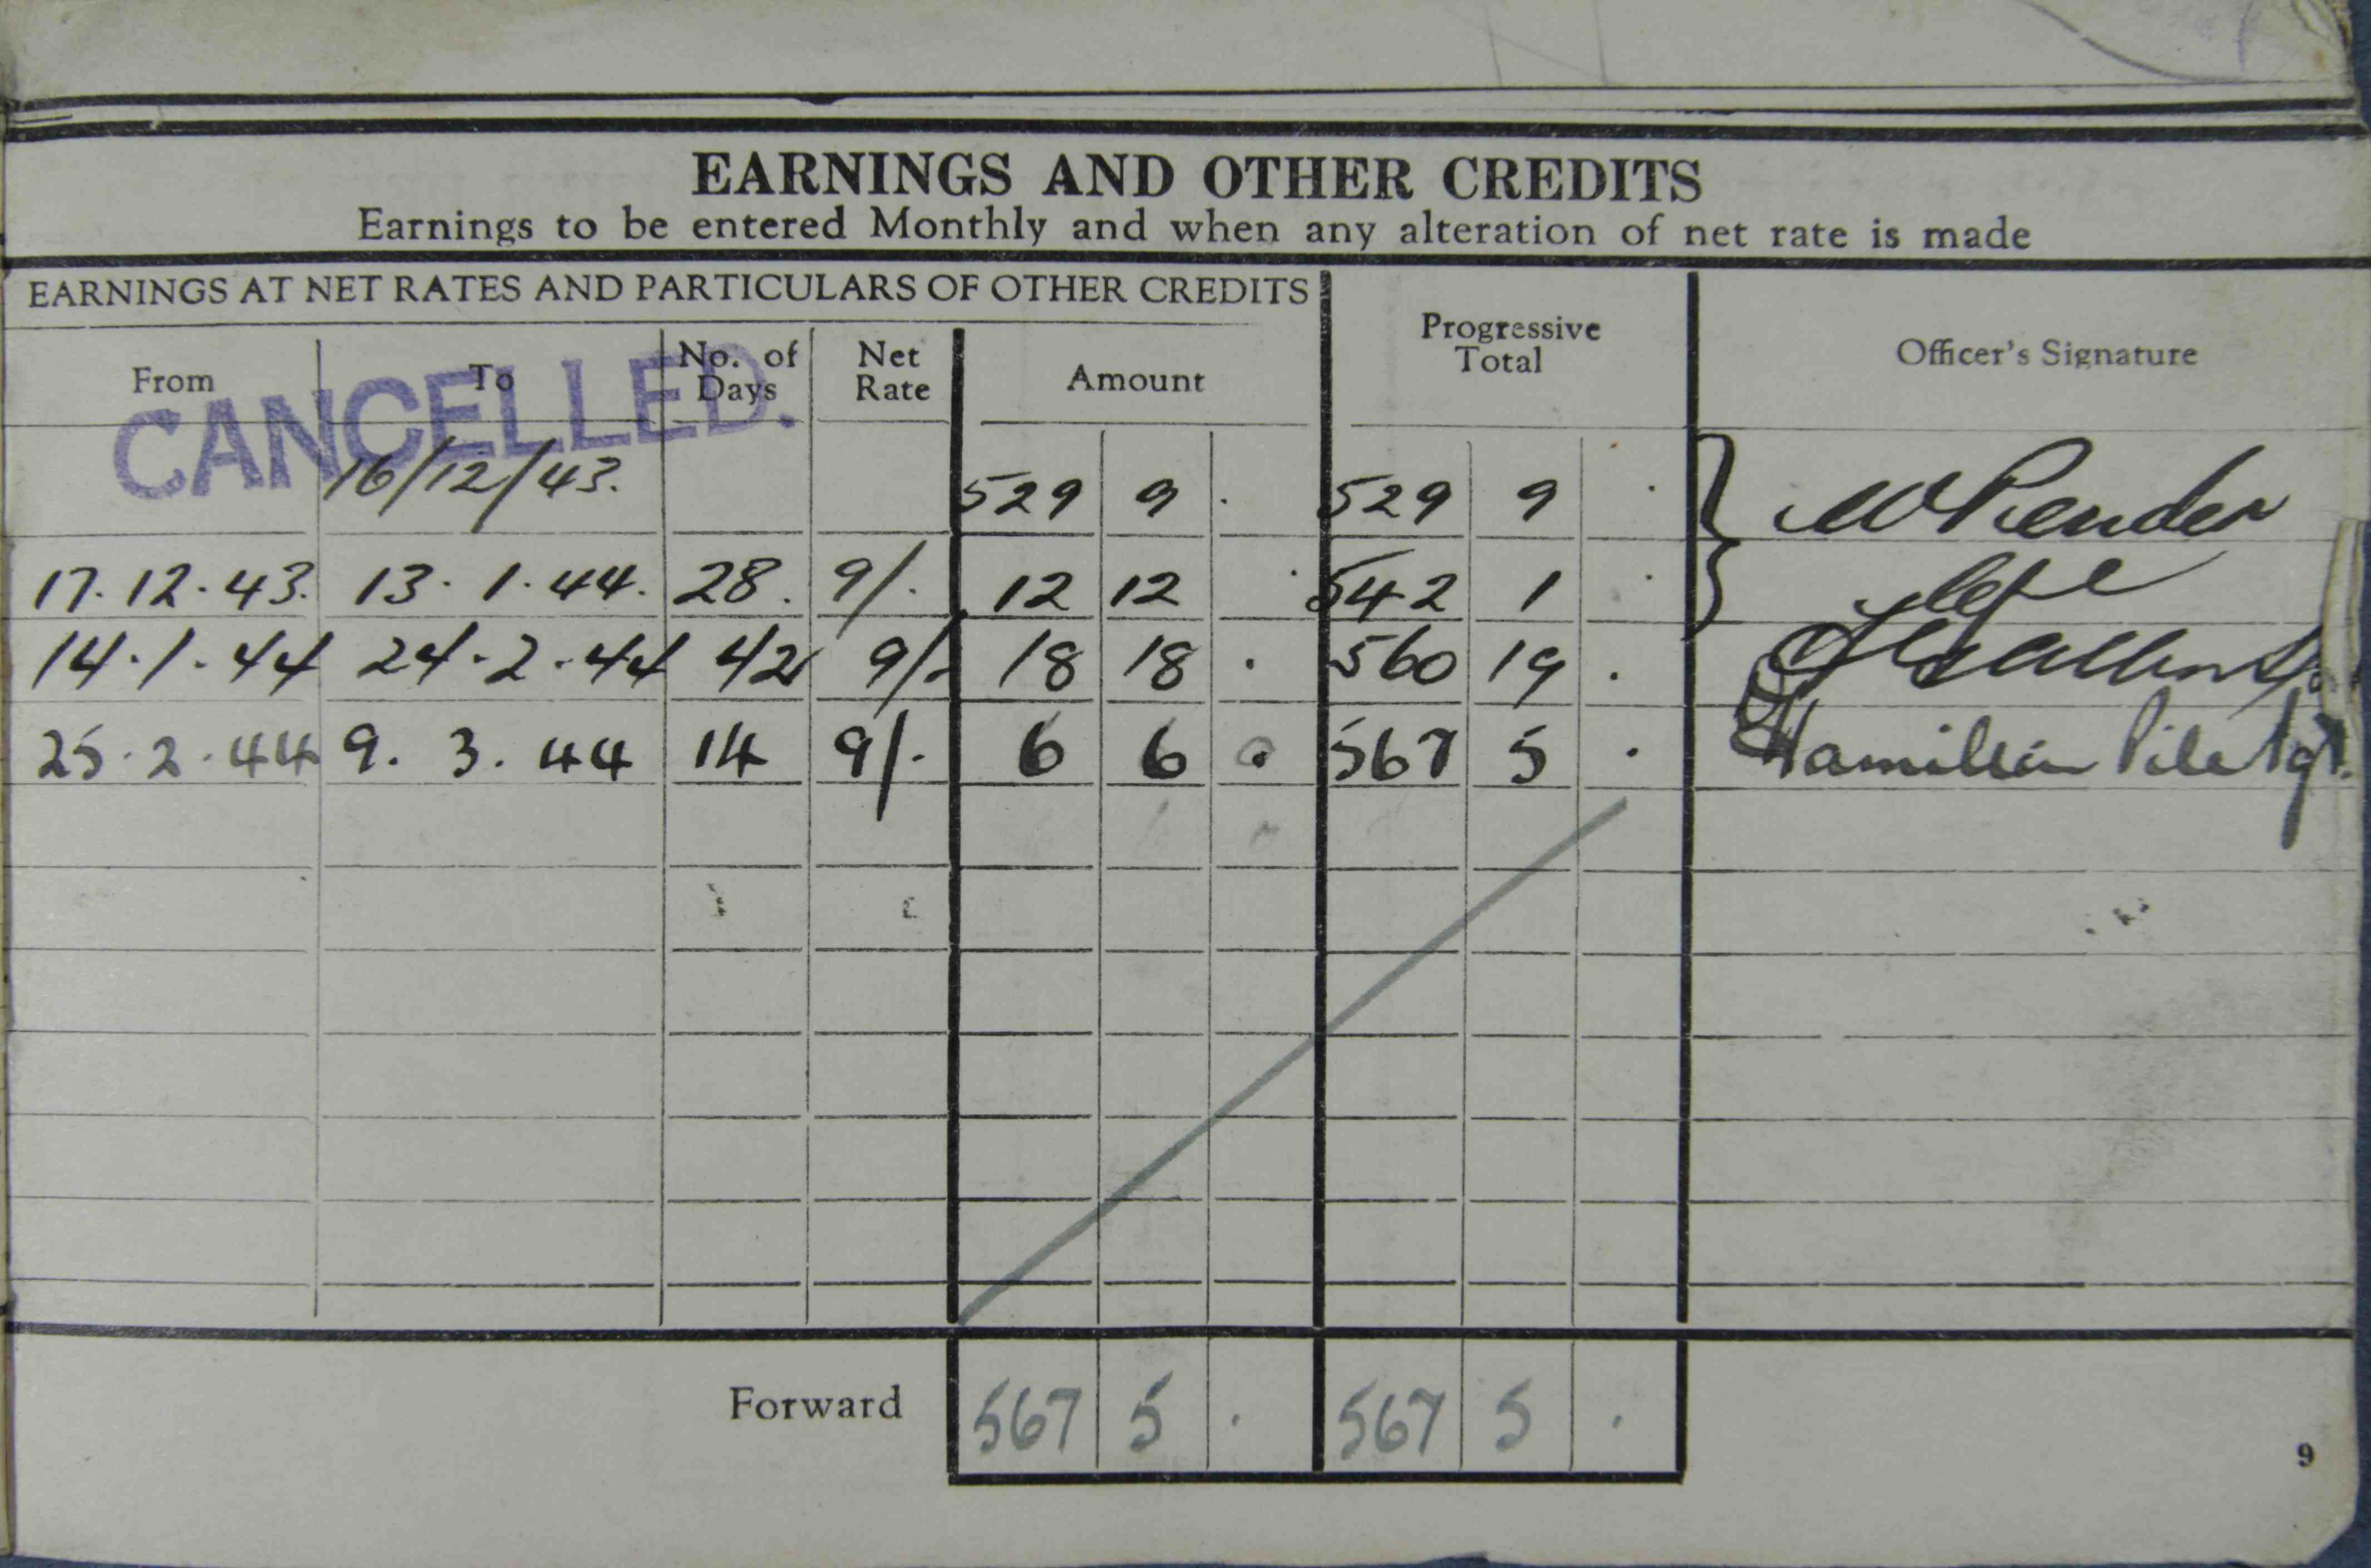 EARNINGS AND OTHER CREDITS
Earnings to be entered Monthly and when any alteration of net rate is made
EARNINGS AT NET RATES AND PARTICULARS OF OTHER CREDITS
From To No. of Days Net Rate Amount Progressive Total Officer's Signature
CANCELLED.
16/12/43. 529 9 . 529 9 .
17.12.43. 13.1.44. 28. 9/. 12 12 . 542 1 .
14.1.44 24.2.44 42 9/. 18 18 . 560 19 .
25.2.44 9.3.44 14 9/. 6 6 . 567 5 .
Forward 567 5 . 567 5 .
9